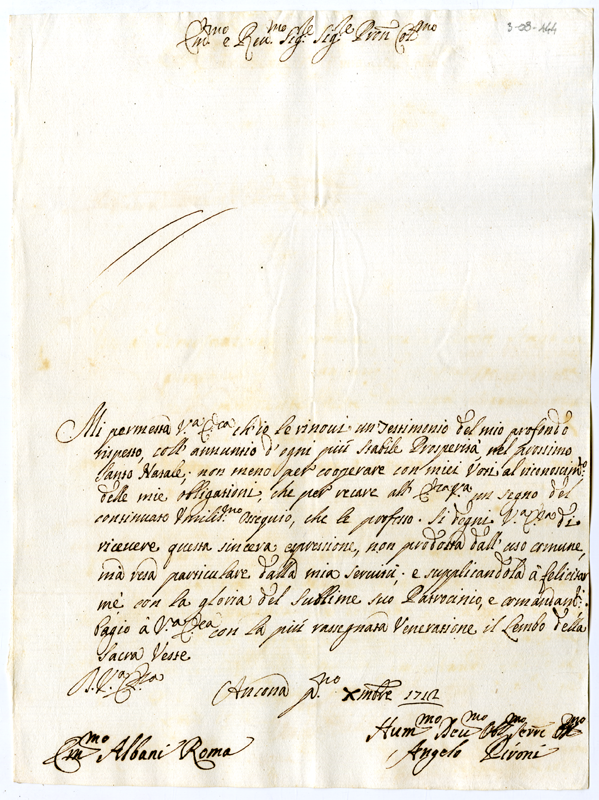 Em.mo e Reu.mo Sig.re Sig.re Pron Col.mo
3-28-144
Mi permetta V.a Em.za ch'io le rinoui un Testimonio del mio profondo
rispetto, coll'annuntio d'ogni più stabile Prosperità nel prossimo
Santo Natale; non meno per cooperare con miei Voti al riconoscim.to
delle mie obligationi, che per recare all' Em.za V.a un segno del
continuato Umiliss.mo ossequio, che le professo. Si degni V.a Em.za di
riceuere questa sincera espressione, non prodotta dall'uso comune,
mà resa particulare dalla mia seruitù. e supplicandola à felicitar
mè con la gloria del Sublime suo Patrocinio, e comandam.ti.
bagio à V.a Em.za con la più rassegnata Veneratione il Lembo della
Sacra Veste
D. V.a Em.za
Ancona p.mo Xmbre
Hum.mo Deu.mo Obl.mo Serre
Angelo Pironi
Em.mo Albani Roma